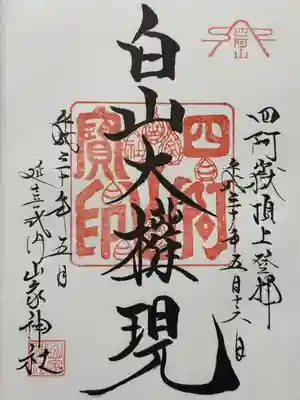 四阿山
四阿嶽頂上登拝
平成三十年五月十六日
白山大權現
四阿
寶印
平成三十年五月
延喜式内山家神社